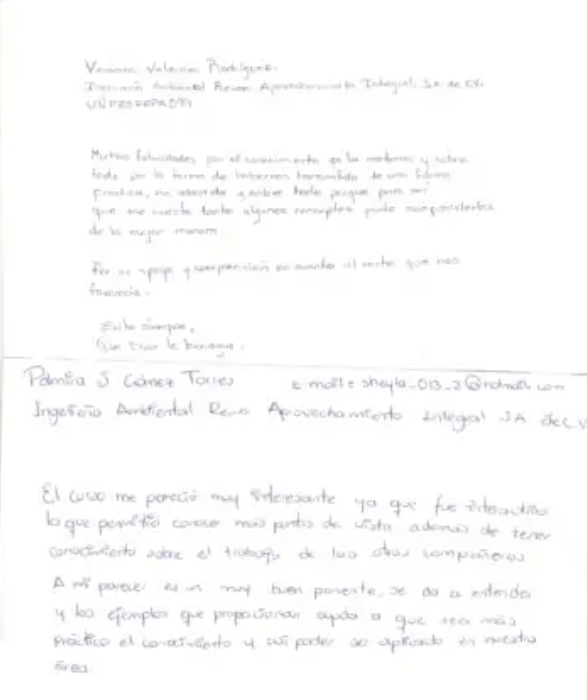 Valencia Rodríguez.
Ambiental Reino Aprovechamiento Integral, S.A de CV.
Muchas felicidades por el conocimiento en la materia y sobre
todo por la forma de transmitirlo de una forma
practica, no aburrida y sobre todo porque para mi
que me cuesta tanto algunos conceptos pude comprenderlos
de la mejor manera
Por su apoyo y comprension en cuanto al
Exito siempre,
Que Dios le bendiga.
Palmira S Gómez Torres e-mail: sheyla_013_2@hotmail.com
Ambiental Reino Aprovechamiento Integral SA de C.V
El curso me pareció muy interesante ya que fue interactivo
lo que permitio conocer mas puntos de vista ademas de tener
conocimiento sobre el trabajo de los otros compañeros
A mi parecer es un muy buen ponente, se da a entender
y los ejemplos que proporcionan ayuda a que sea más
práctico el conocimiento y asi poder ser aplicado en nuestra
área.